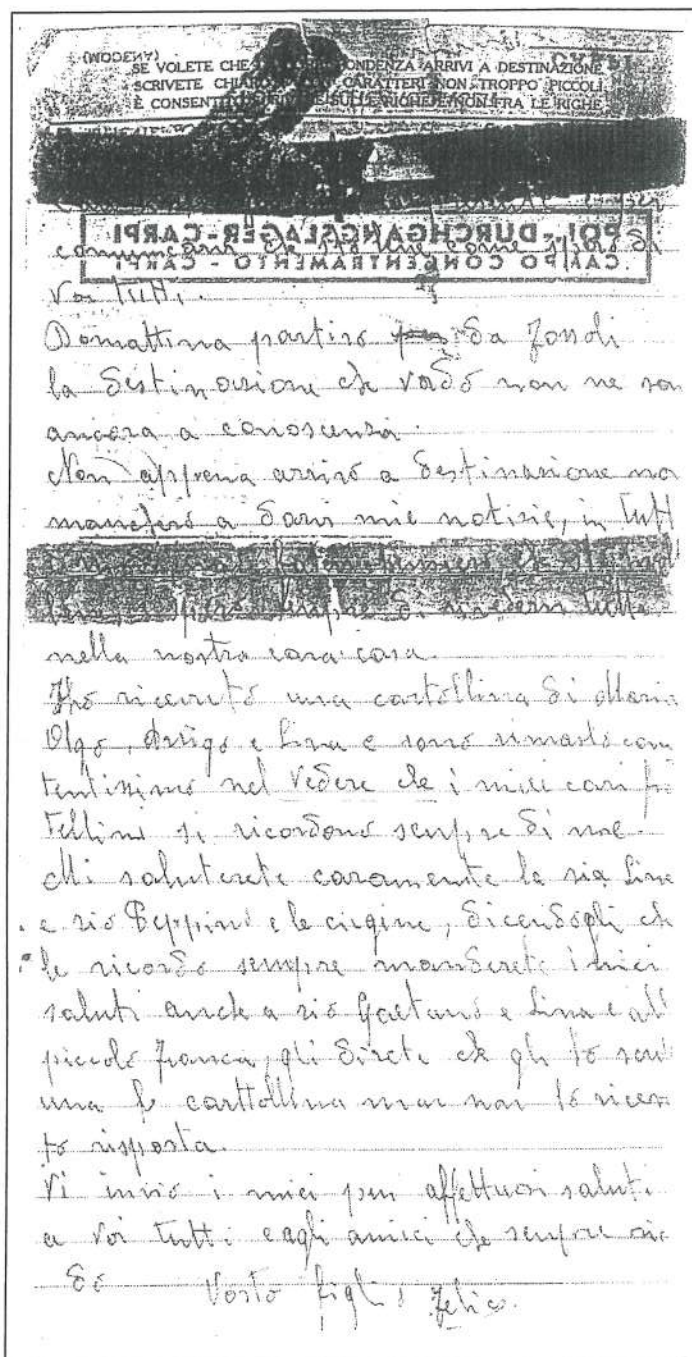 SE VOLETE CHE ONDENZA ARRIVI A DESTINAZIONE
SCRIVETE CHIARO CARATTERI NON TROPPO PICCOLI
È CONSENTITO SULLE RIGHE E NON FRA LE RIGHE
POL-DURCHGANGSLAGER-CARPI
CAMPO CONCENTRAMENTO - CARPI
comunicarvi che sto bene come spero di
voi tutti.
Domattina partirò da Fossoli
la destinazione che vado non ne son
ancora a conoscenza.
Non apprena arrivò a destinazione no
mancherò a darvi mie notizie, in tutt
bene, spero sempre di rivedervi tutti
nella nostra cara casa.
Ho ricevuto una cartollina di Maria
Olga, Arrigo e Lina e sono rimasto con
tentissimo nel vedere che i miei cari fra
tellini si ricordono sempre di me.
Mi saluterete caramente la zia Lina
e zio Peppino e le cugine, dicendogli che
le ricordo sempre manderete i miei
saluti anche a zio Gaetano e Lina e al
piccolo Franca, gli direte che gli ho scri
una cartollina mai non ho ricevu
to risposta.
Vi invio i miei più affettuosi saluti
a voi tutti e agli amici che sempre ric
do
Vosto figlio Felico.